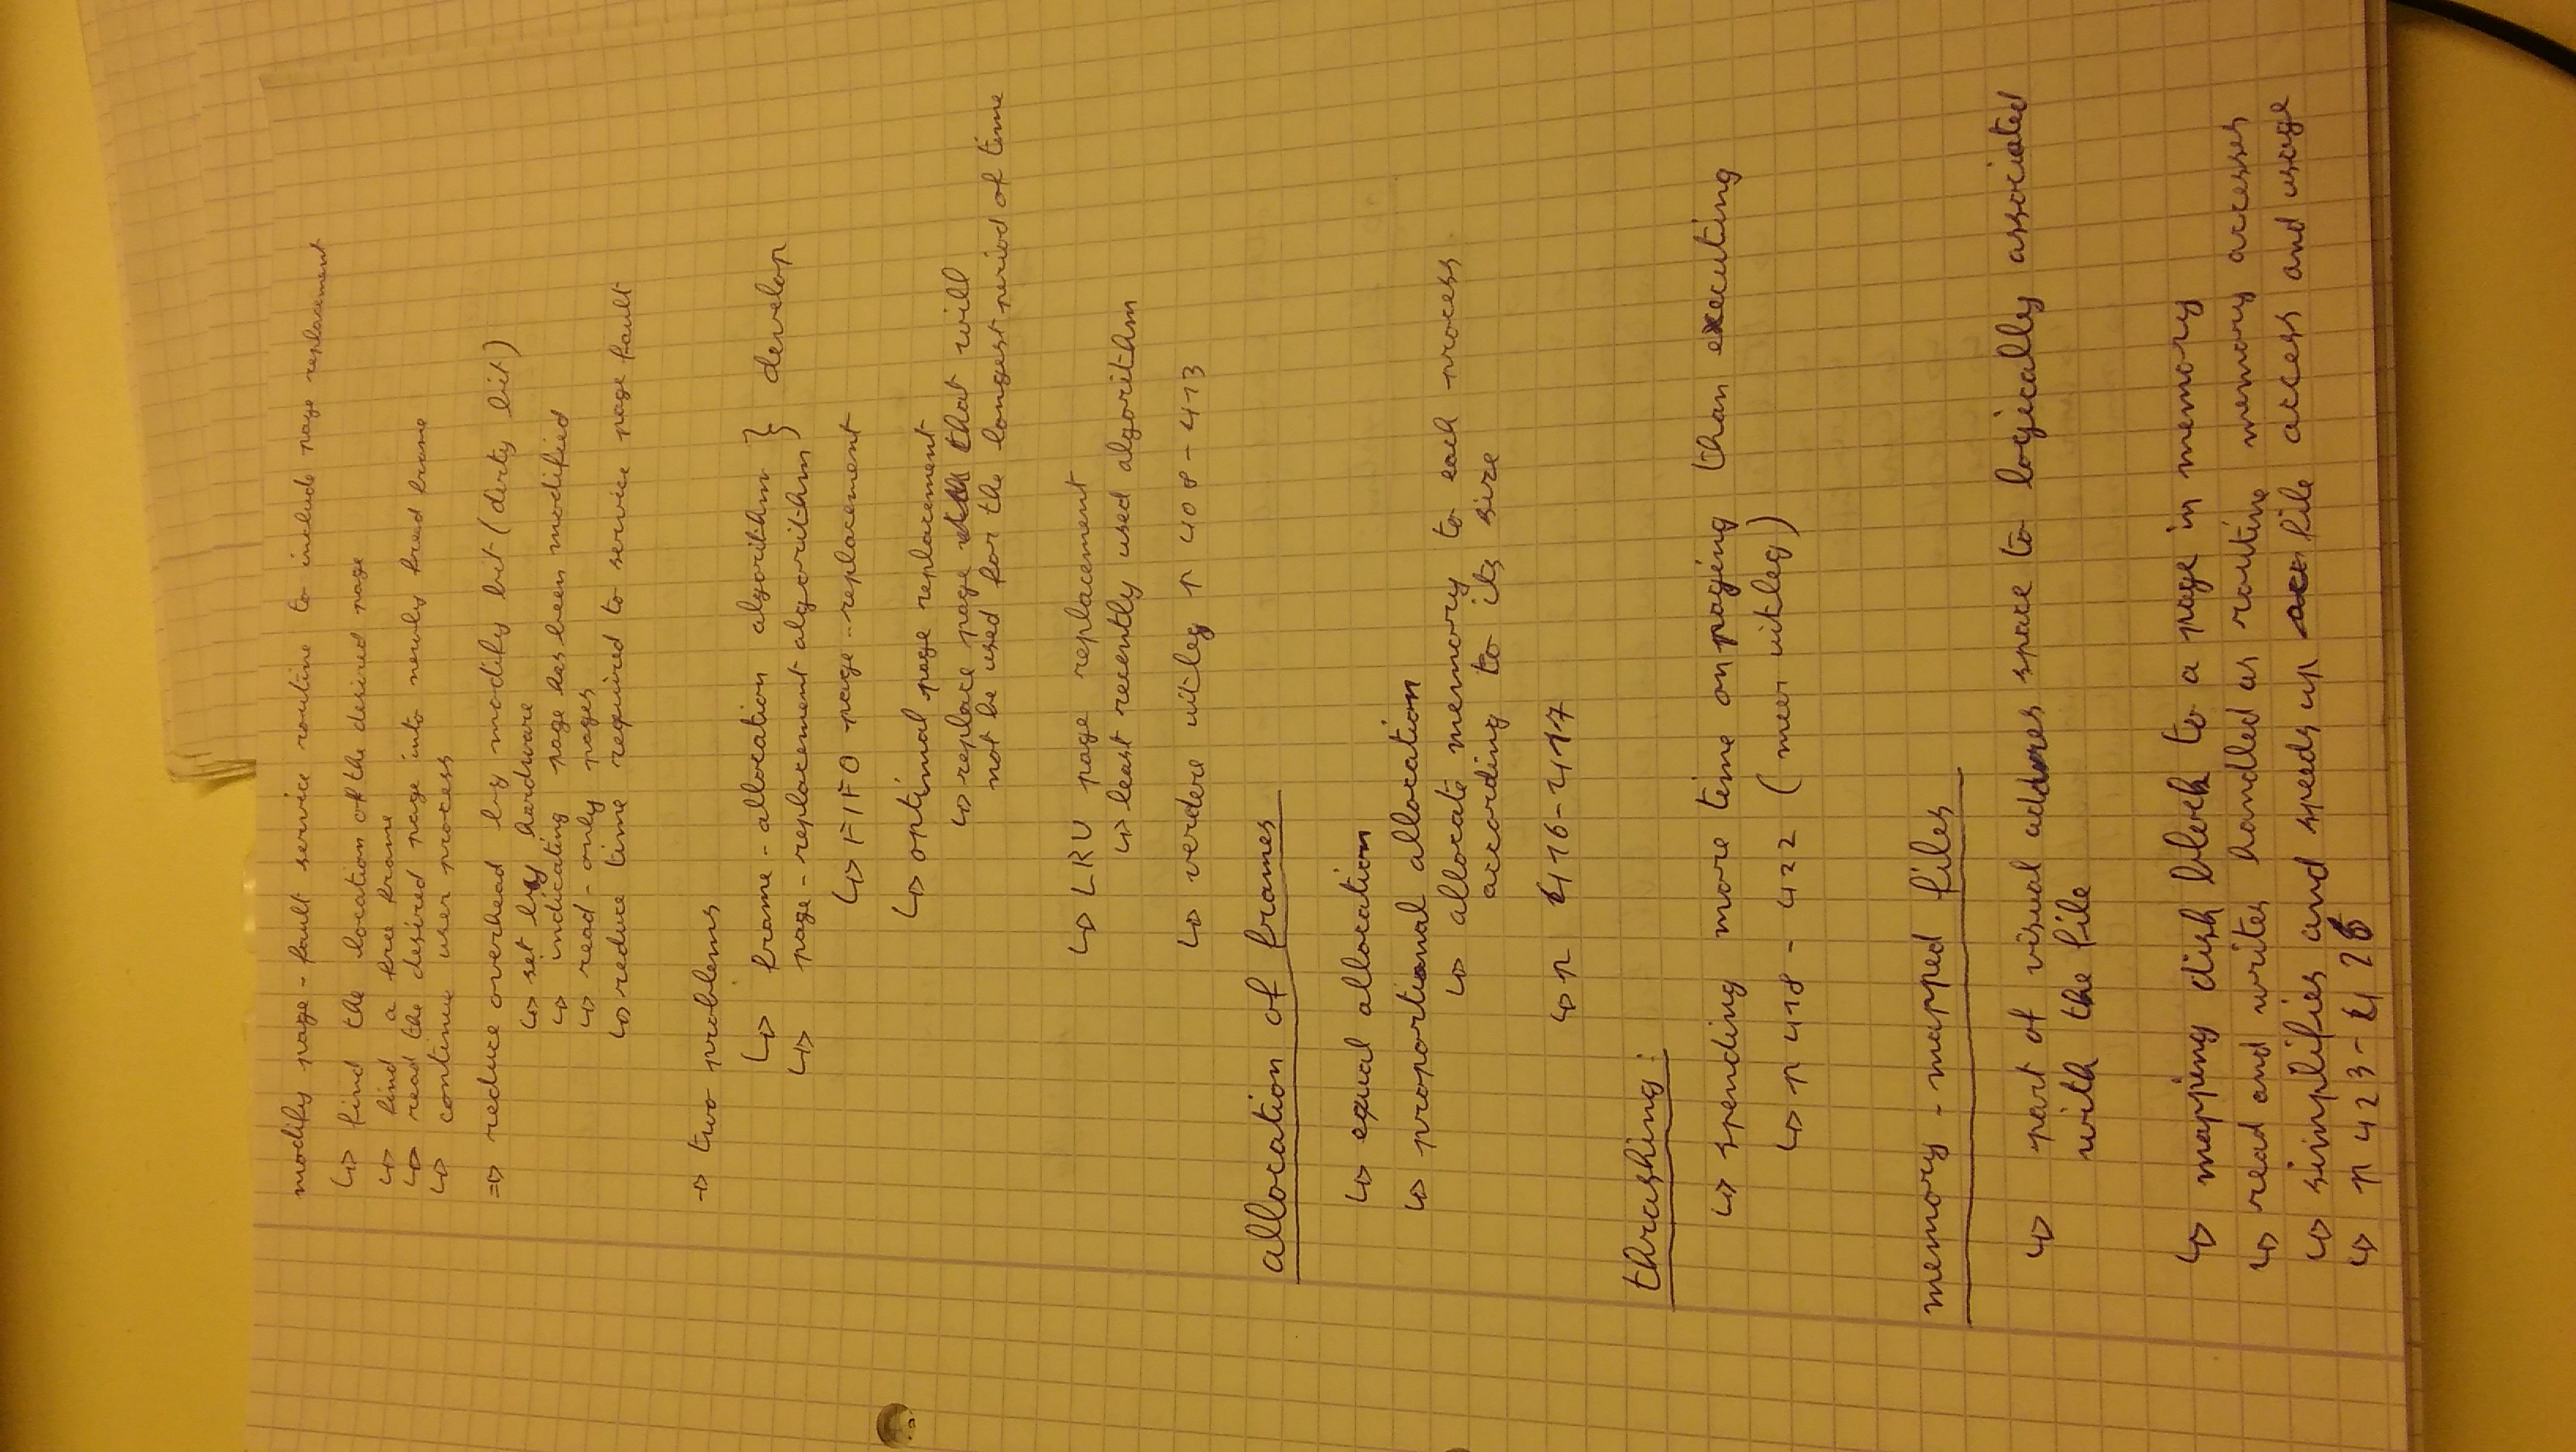 modify page-fault service routine to include page replacement
↳ find the location of the desired page
↳ find a free frame
↳ read the desired page into newly freed frame
↳ continue user process
=> reduce overhead by modify bit (dirty bit)
↳ set by hardware
↳ indicating page has been modified
↳ read-only pages
↳ reduce time required to service page fault
→ two problems
↳ frame-allocation algorithm } develop
↳ page-replacement algorithm
↳ FIFO page-replacement
↳ optimal page replacement
↳ replace page that will
not be used for the longest period of time
↳ LRU page replacement
↳ least recently used algorithm
↳ verdere uitleg p 408-413
allocation of frames
↳ equal allocation
↳ proportional allocation
↳ allocate memory to each process
according to its size
↳ p 416-417
thrashing:
↳ spending more time on paging than executing
↳ p 418 - 422 (meer uitleg)
memory-mapped files
↳ part of visual addres space to logically associated
with the file
↳ mapping disk block to a page in memory
↳ read and writes handled as routine memory accesses
↳ simplifies and speeds up file access and usage
↳ p 423-426